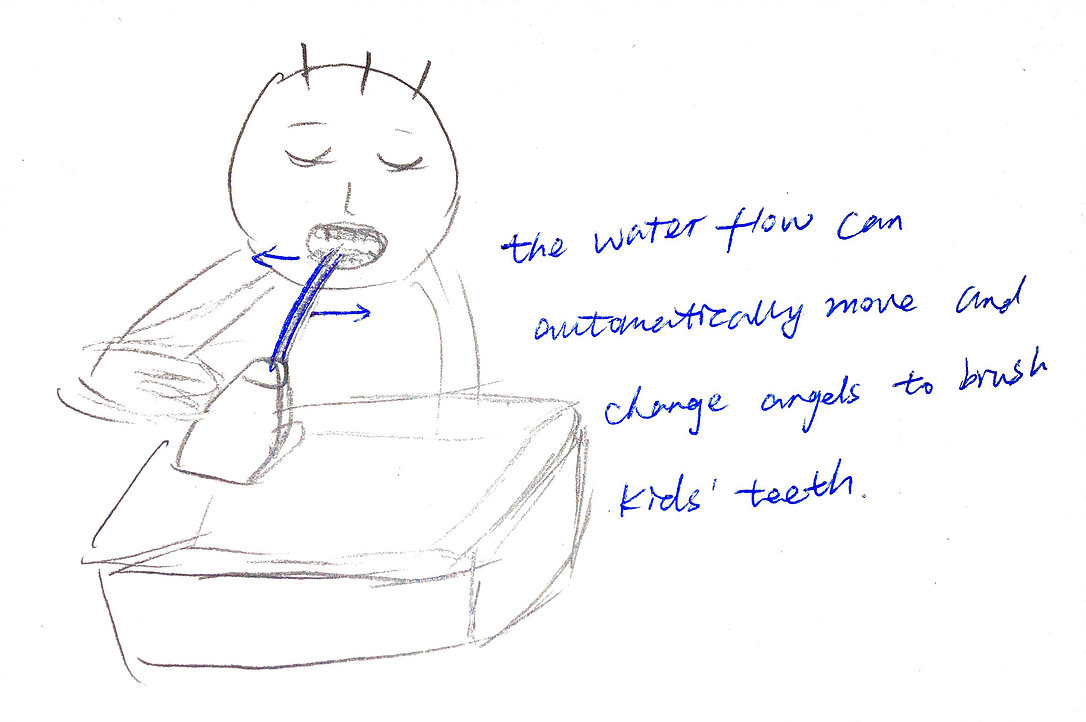 the water flow can
automatically move and
change angels to brush
kids' teeth.